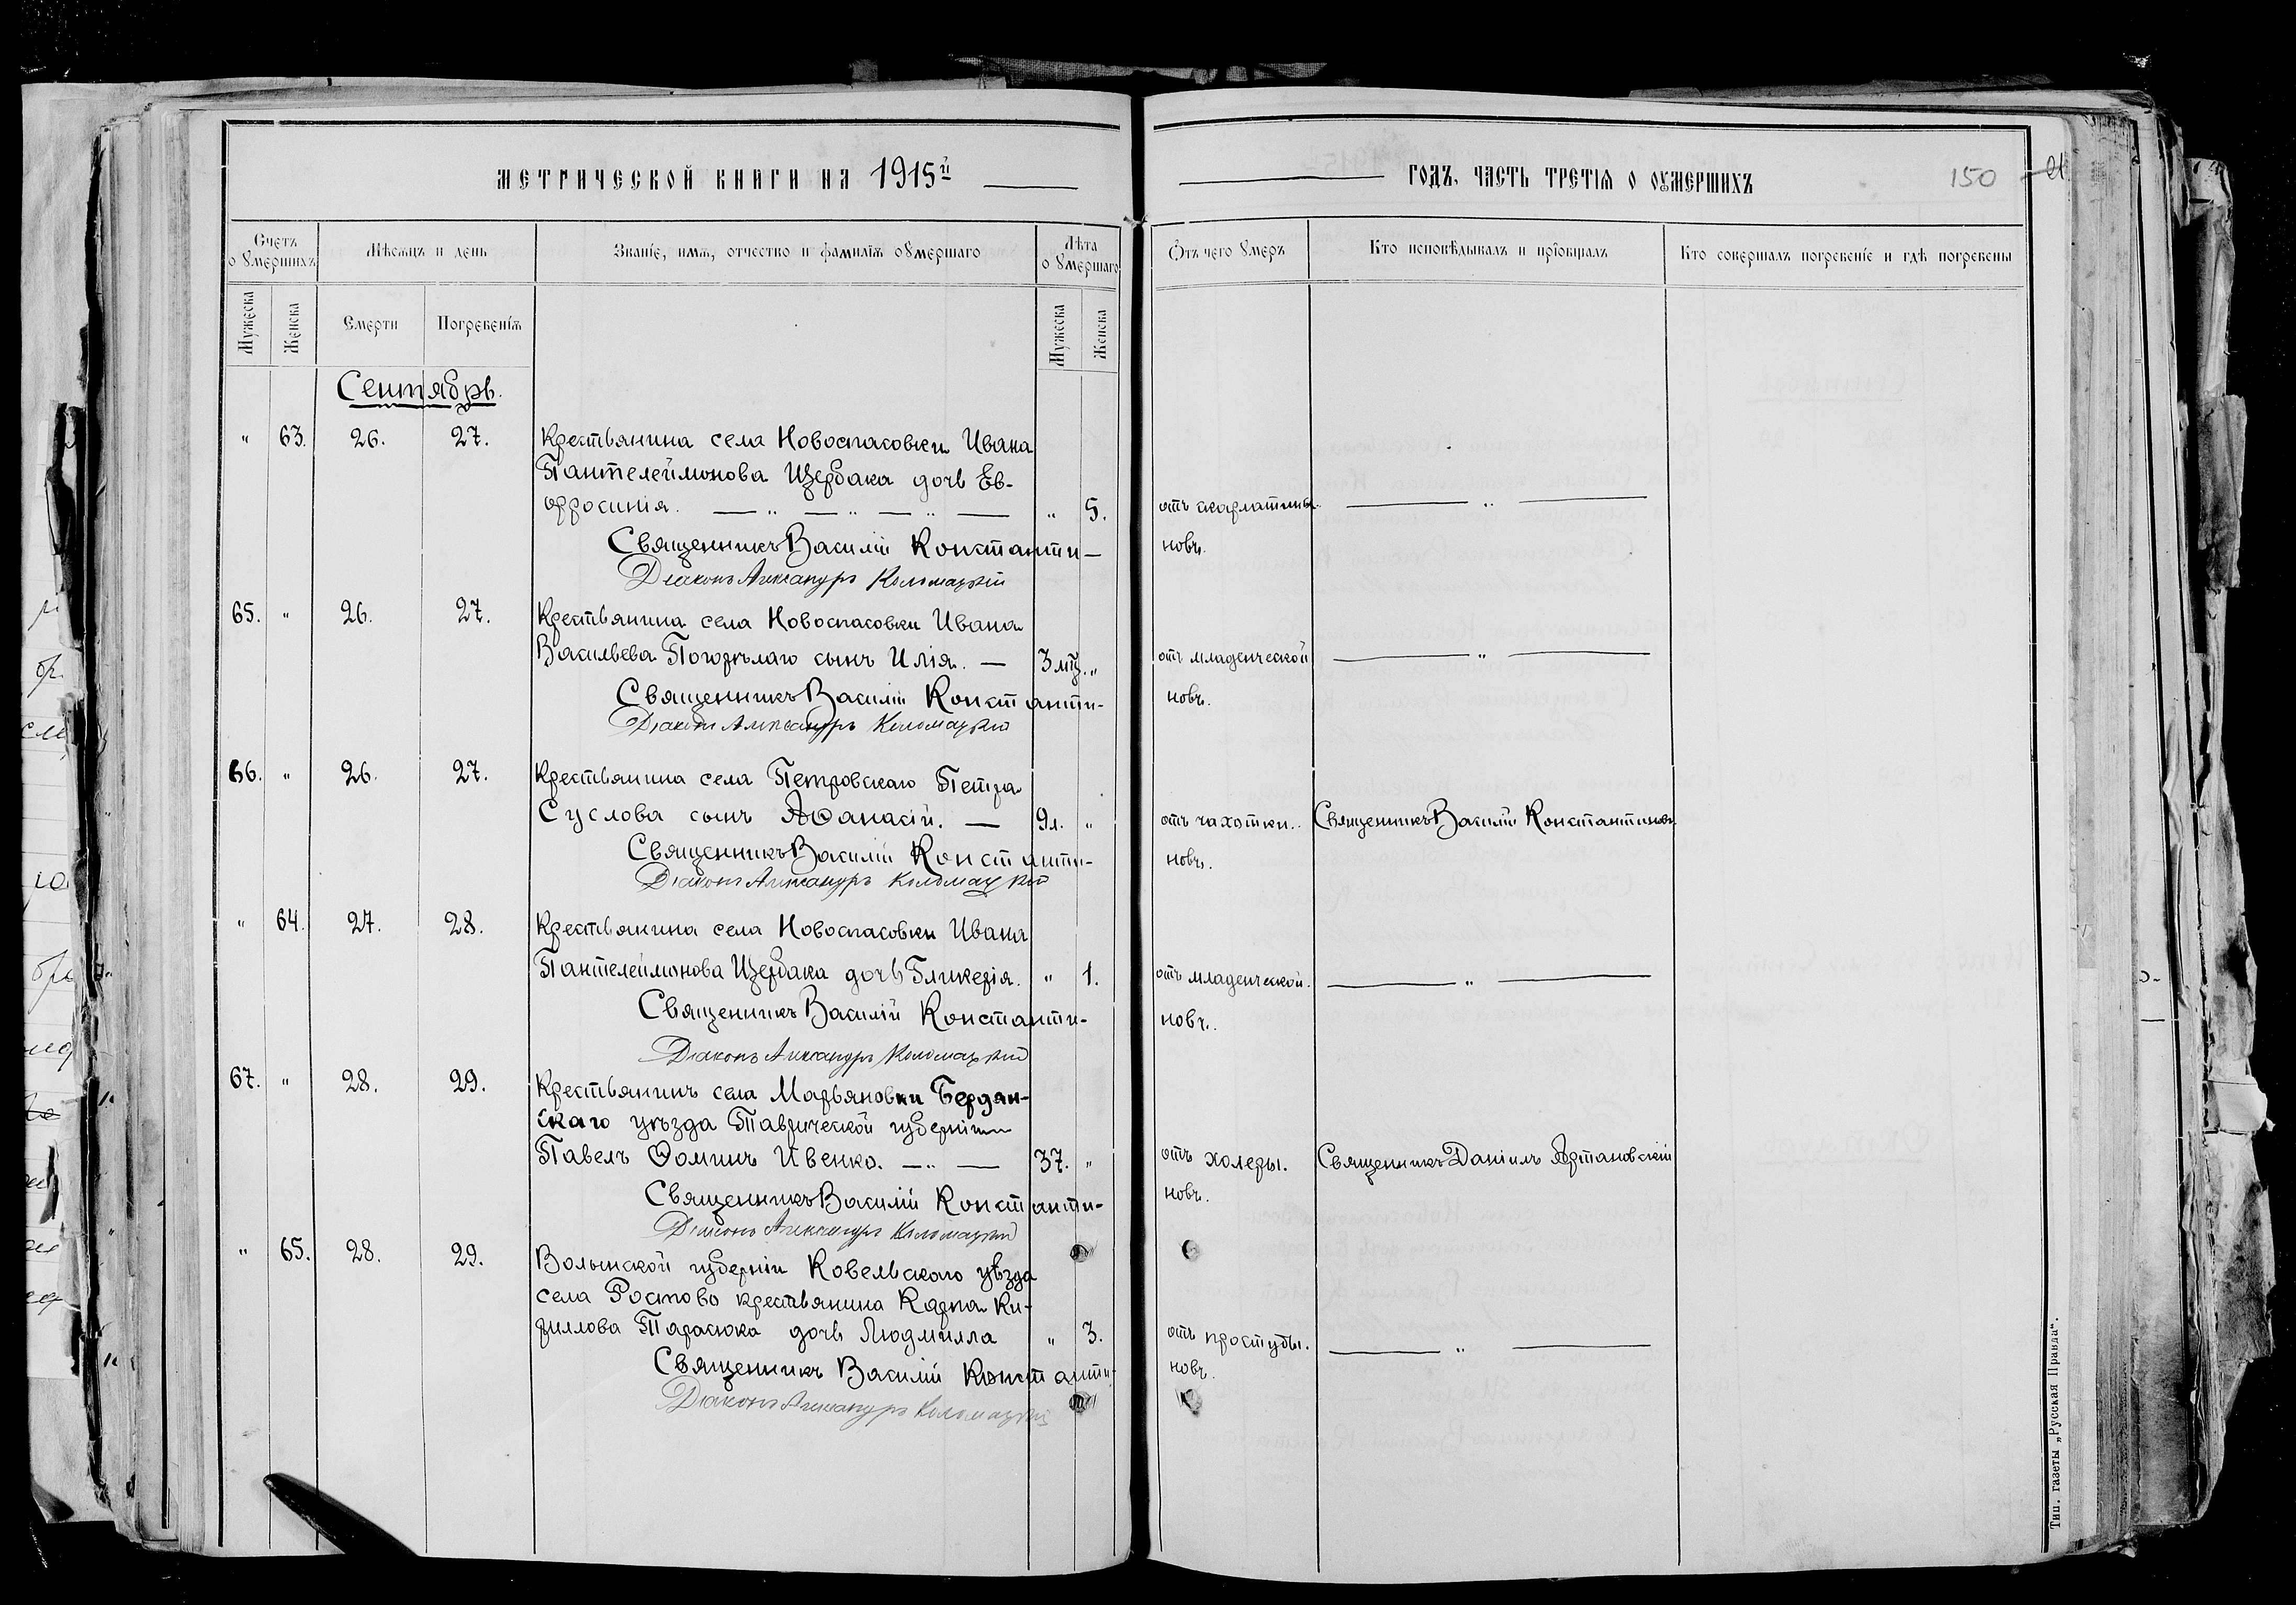 МЕТРИЧЕСКОЙ КНИГИ НА 1915й
ГОДЪ, ЧАСТЬ ТРЕТІЯ О ОУМЕРШИХЪ
150
Счетъ оумершихъ
Мѣсяцъ и день
Званіе, имя, отчество и фамилія оумершаго
Лѣта оумершаго
Отъ чего умеръ
Кто исповѣдывалъ и пріобщалъ
Кто совершалъ погребеніе и гдѣ погребены
Мужеска
Женска
Смерти
Погребенія
Мужеска
Женска
Сентябрь.
" 63. 26. 27. Крестьянина села Новоспасовки Ивана
Пантелеймонова Щербака дочь Ев-
фросинія. " 5. отъ скарлатины. "
Священникъ Василій Константи- новъ.
Діаконъ Александръ Коломацкій
65. " 26. 27. Крестьянина села Новоспасовки Ивана
Васильева Погорѣлаго сынъ Илія. — 3 мц. " отъ младенческой "
Священникъ Василій Константи- новъ.
Діаконъ Александръ Коломацкій
66. " 26. 27. Крестьянина села Петровскаго Петра
Суслова сынъ Аѳанасій. — 9 л. " отъ чахотки. Священникъ Василій Константиновъ.
Священникъ Василій Константи- новъ.
Діаконъ Александръ Коломацкій
" 64. 27. 28. Крестьянина села Новоспасовки Ивана
Пантелеймонова Щербака дочь Гликерія. " 1. отъ младенческой. "
Священникъ Василій Константи- новъ.
Діаконъ Александръ Коломацкій
67. " 28. 29. Крестьянинъ села Марьяновки Бердян-
скаго уѣзда Таврической губерніи
Павелъ Ѳоминъ Ивенко. 37. " отъ холеры. Священникъ Даніилъ Артановскій
Священникъ Василій Константи- новъ.
Діаконъ Александръ Коломацкій
" 65. 28. 29. Волынской губерніи Ковельскаго уѣзда
села Ростово крестьянина Карпа Ки-
риллова Тарасюка дочь Людмилла " 3. отъ простуды. "
Священникъ Василій Константи- новъ.
Діаконъ Александръ Коломацкій
Тип. газеты „Русская Правда".